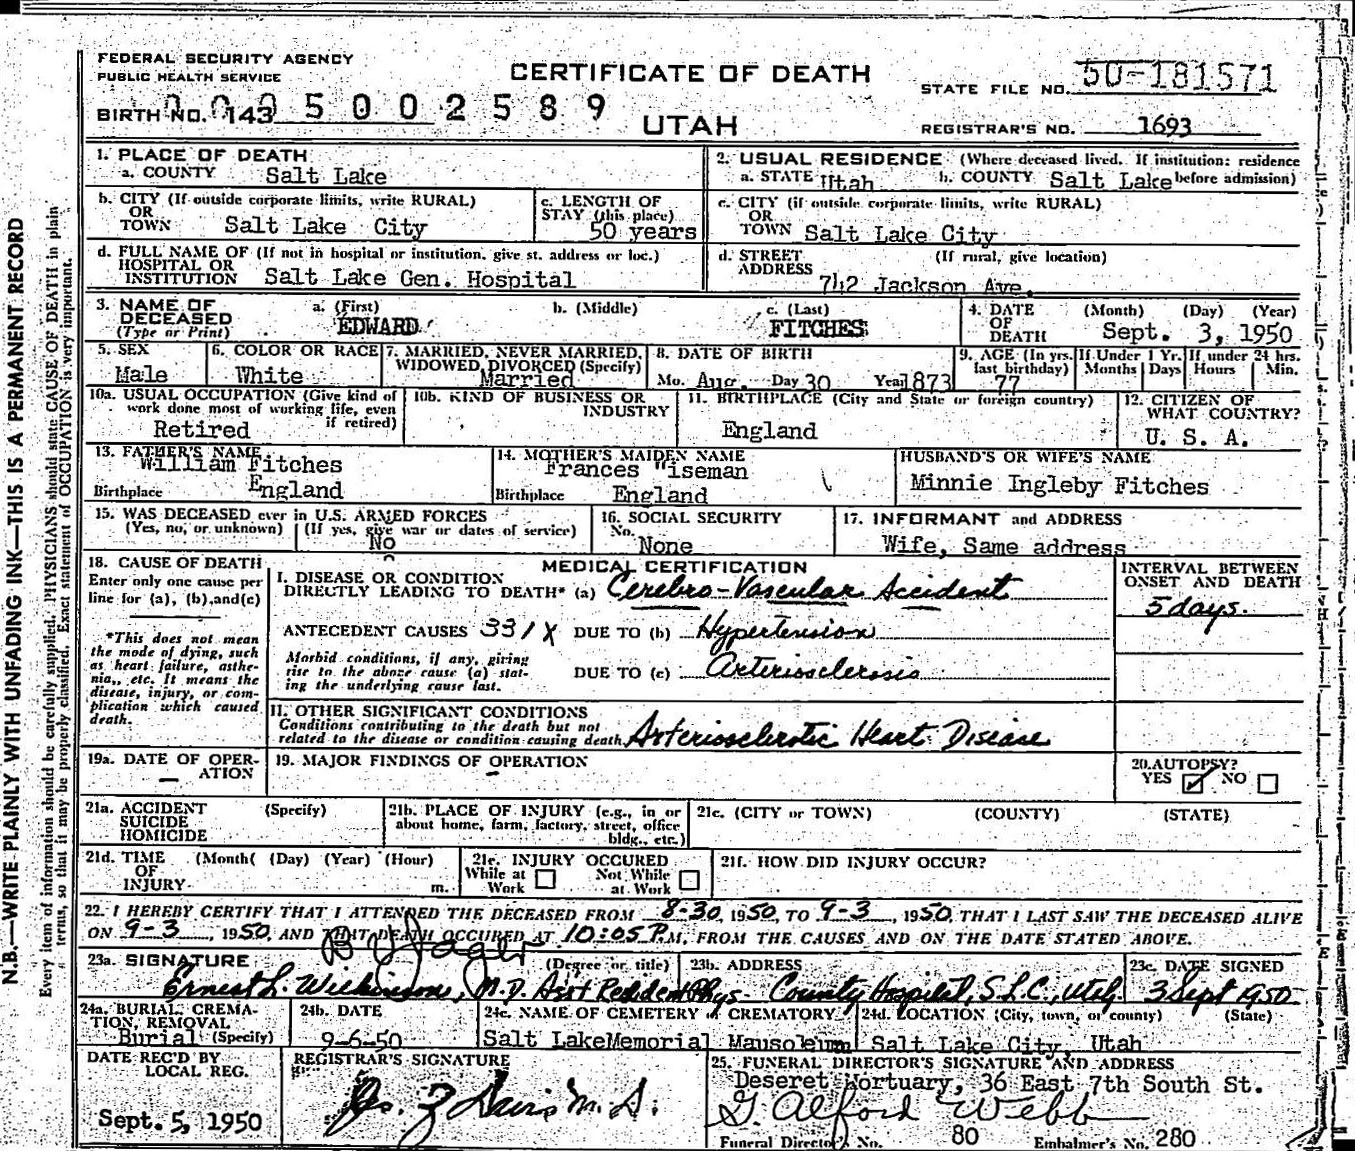 FEDERAL SECURITY AGENCY
PUBLIC HEALTH SERVICE
CERTIFICATE OF DEATH
STATE FILE NO. 50-181571
BIRTH NO. 143
0 0 0 5 0 0 2 5 8 9
UTAH
REGISTRAR'S NO. 1693
N.B.—WRITE PLAINLY WITH UNFADING INK—THIS IS A PERMANENT RECORD
Every item of information should be carefully supplied. PHYSICIANS should state CAUSE OF DEATH in plain
terms, so that it may be properly classified. Exact statement of OCCUPATION is very important.
1. PLACE OF DEATH
a. COUNTY Salt Lake
2. USUAL RESIDENCE (Where deceased lived. If institution: residence
a. STATE Utah b. COUNTY Salt Lake before admission)
b. CITY (If outside corporate limits, write RURAL)
OR
TOWN Salt Lake City
c. LENGTH OF
STAY (this place)
50 years
c. CITY (if outside corporate limits, write RURAL)
OR
TOWN Salt Lake City
d. FULL NAME OF (If not in hospital or institution, give st. address or loc.)
HOSPITAL OR
INSTITUTION Salt Lake Gen. Hospital
d. STREET (If rural, give location)
ADDRESS
742 Jackson Ave.
3. NAME OF
DECEASED
(Type or Print)
a. (First)
EDWARD
b. (Middle)
c. (Last)
FITCHES
4. DATE
OF
DEATH
(Month) (Day) (Year)
Sept. 3, 1950
5. SEX
Male
6. COLOR OR RACE
White
7. MARRIED, NEVER MARRIED,
WIDOWED, DIVORCED (Specify)
Married
8. DATE OF BIRTH
Mo. Aug. Day 30 Year 1873
9. AGE (In yrs.
last birthday)
77
If Under 1 Yr.
Months Days
If under 24 hrs.
Hours Min.
10a. USUAL OCCUPATION (Give kind of
work done most of working life, even
if retired)
Retired
10b. KIND OF BUSINESS OR
INDUSTRY
11. BIRTHPLACE (City and State or foreign country)
England
12. CITIZEN OF
WHAT COUNTRY?
U. S. A.
13. FATHER'S NAME
William Fitches
Birthplace England
14. MOTHER'S MAIDEN NAME
Frances "iseman
Birthplace England
HUSBAND'S OR WIFE'S NAME
Minnie Ingleby Fitches
15. WAS DECEASED ever in U.S. ARMED FORCES
(Yes, no, or unknown) (If yes, give war or dates of service)
No
16. SOCIAL SECURITY
No.
None
17. INFORMANT and ADDRESS
Wife, Same address
18. CAUSE OF DEATH
Enter only one cause per
line for (a), (b), and (c)
*This does not mean
the mode of dying, such
as heart failure, asthe-
nia,, etc. It means the
disease, injury, or com-
plication which caused
death.
MEDICAL CERTIFICATION
I. DISEASE OR CONDITION
DIRECTLY LEADING TO DEATH* (a) Cerebro-Vascular Accident
ANTECEDENT CAUSES 331X DUE TO (b) Hypertension
Morbid conditions, if any, giving
rise to the above cause (a) stat-
ing the underlying cause last.
DUE TO (c) Arteriosclerosis
INTERVAL BETWEEN
ONSET AND DEATH
5 days.
II. OTHER SIGNIFICANT CONDITIONS
Conditions contributing to the death but not
related to the disease or condition causing death. Arteriosclerotic Heart Disease
19a. DATE OF OPER-
ATION
—
19. MAJOR FINDINGS OF OPERATION
—
20. AUTOPSY?
YES NO
21a. ACCIDENT (Specify)
SUICIDE
HOMICIDE
21b. PLACE OF INJURY (e.g., in or
about home, farm, factory, street, office
bldg., etc.)
21c. (CITY or TOWN) (COUNTY) (STATE)
21d. TIME (Month( (Day) (Year) (Hour)
OF
INJURY m.
21e. INJURY OCCURED
While at Not While
Work at Work
21f. HOW DID INJURY OCCUR?
22. I HEREBY CERTIFY THAT I ATTENDED THE DECEASED FROM 8-30, 1950, TO 9-3, 1950, THAT I LAST SAW THE DECEASED ALIVE
ON 9-3, 1950, AND THAT DEATH OCCURED AT 10:05 P.M., FROM THE CAUSES AND ON THE DATE STATED ABOVE.
23a. SIGNATURE (Degree or title)
Ernest L. Wilkinson, M.D. Ass't Resident Phys
23b. ADDRESS
County Hospital, S.L.C., Utah
23c. DATE SIGNED
3 Sept 1950
24a. BURIAL, CREMA-
TION, REMOVAL
(Specify)
Burial
24b. DATE
9-6-50
24c. NAME OF CEMETERY or CREMATORY
Salt Lake Memorial Mausoleum
24d. LOCATION (City, town, or county) (State)
Salt Lake City, Utah
DATE REC'D BY
LOCAL REG.
Sept. 5, 1950
REGISTRAR'S SIGNATURE
25. FUNERAL DIRECTOR'S SIGNATURE AND ADDRESS
Deseret Mortuary, 36 East 7th South St.
G. Alford Webb
Funeral Director's No. 80 Embalmer's No. 280